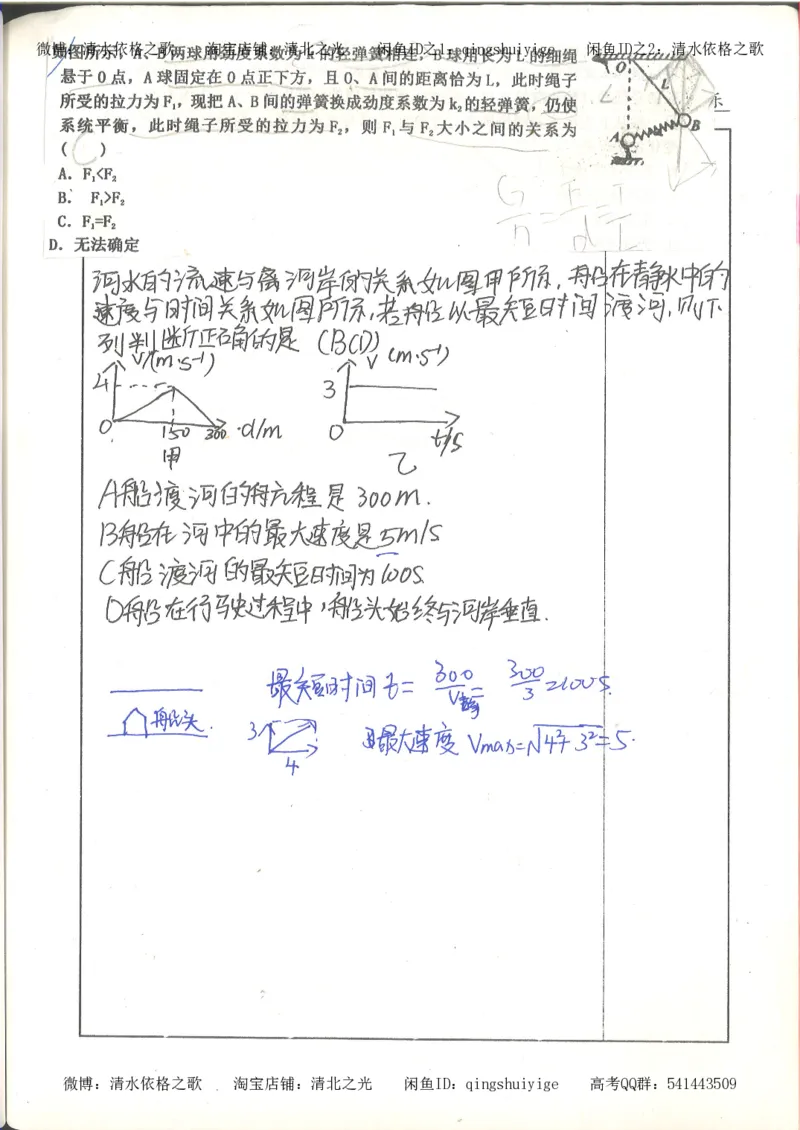 微博：清水依格之歌 淘宝店铺：清北之光 闲鱼ID之1：qingshuiyige 闲鱼ID之2：清水依格之歌
如图所示，A、B两球用劲度系数为k₁的轻弹簧相连，B球用长为L的细绳
悬于O点，A球固定在O点正下方，且O、A间的距离恰为L，此时绳子
所受的拉力为F₁，现把A、B间的弹簧换成劲度系数为k₂的轻弹簧，仍使
系统平衡，此时绳子所受的拉力为F₂，则F₁与F₂大小之间的关系为
( C )
A．F₁<F₂
B．F₁>F₂
C．F₁=F₂
D．无法确定
O
L
L
A
B
示
G/h = F/d = T/L
河水的流速与离河岸的关系如图甲所示，船在静水中的
速度与时间关系如图所示，若船以最短时间渡河，则下
列判断正确的是 (BCD)
V/(m·s⁻¹)
4
0 150 300 d/m
甲
V (m·s⁻¹)
3
0 t/s
乙
A船渡河的航程是300m．
B船在河中的最大速度是5m/s
C船渡河的最短时间为100S
D船在行驶过程中，船头始终与河岸垂直．
最短时间 t= 300/V静 = 300/3 =100s．
船头
3
4
最大速度 Vmax=√4²+3²=5．
微博：清水依格之歌 淘宝店铺：清北之光 闲鱼ID：qingshuiyige 高考QQ群：541443509